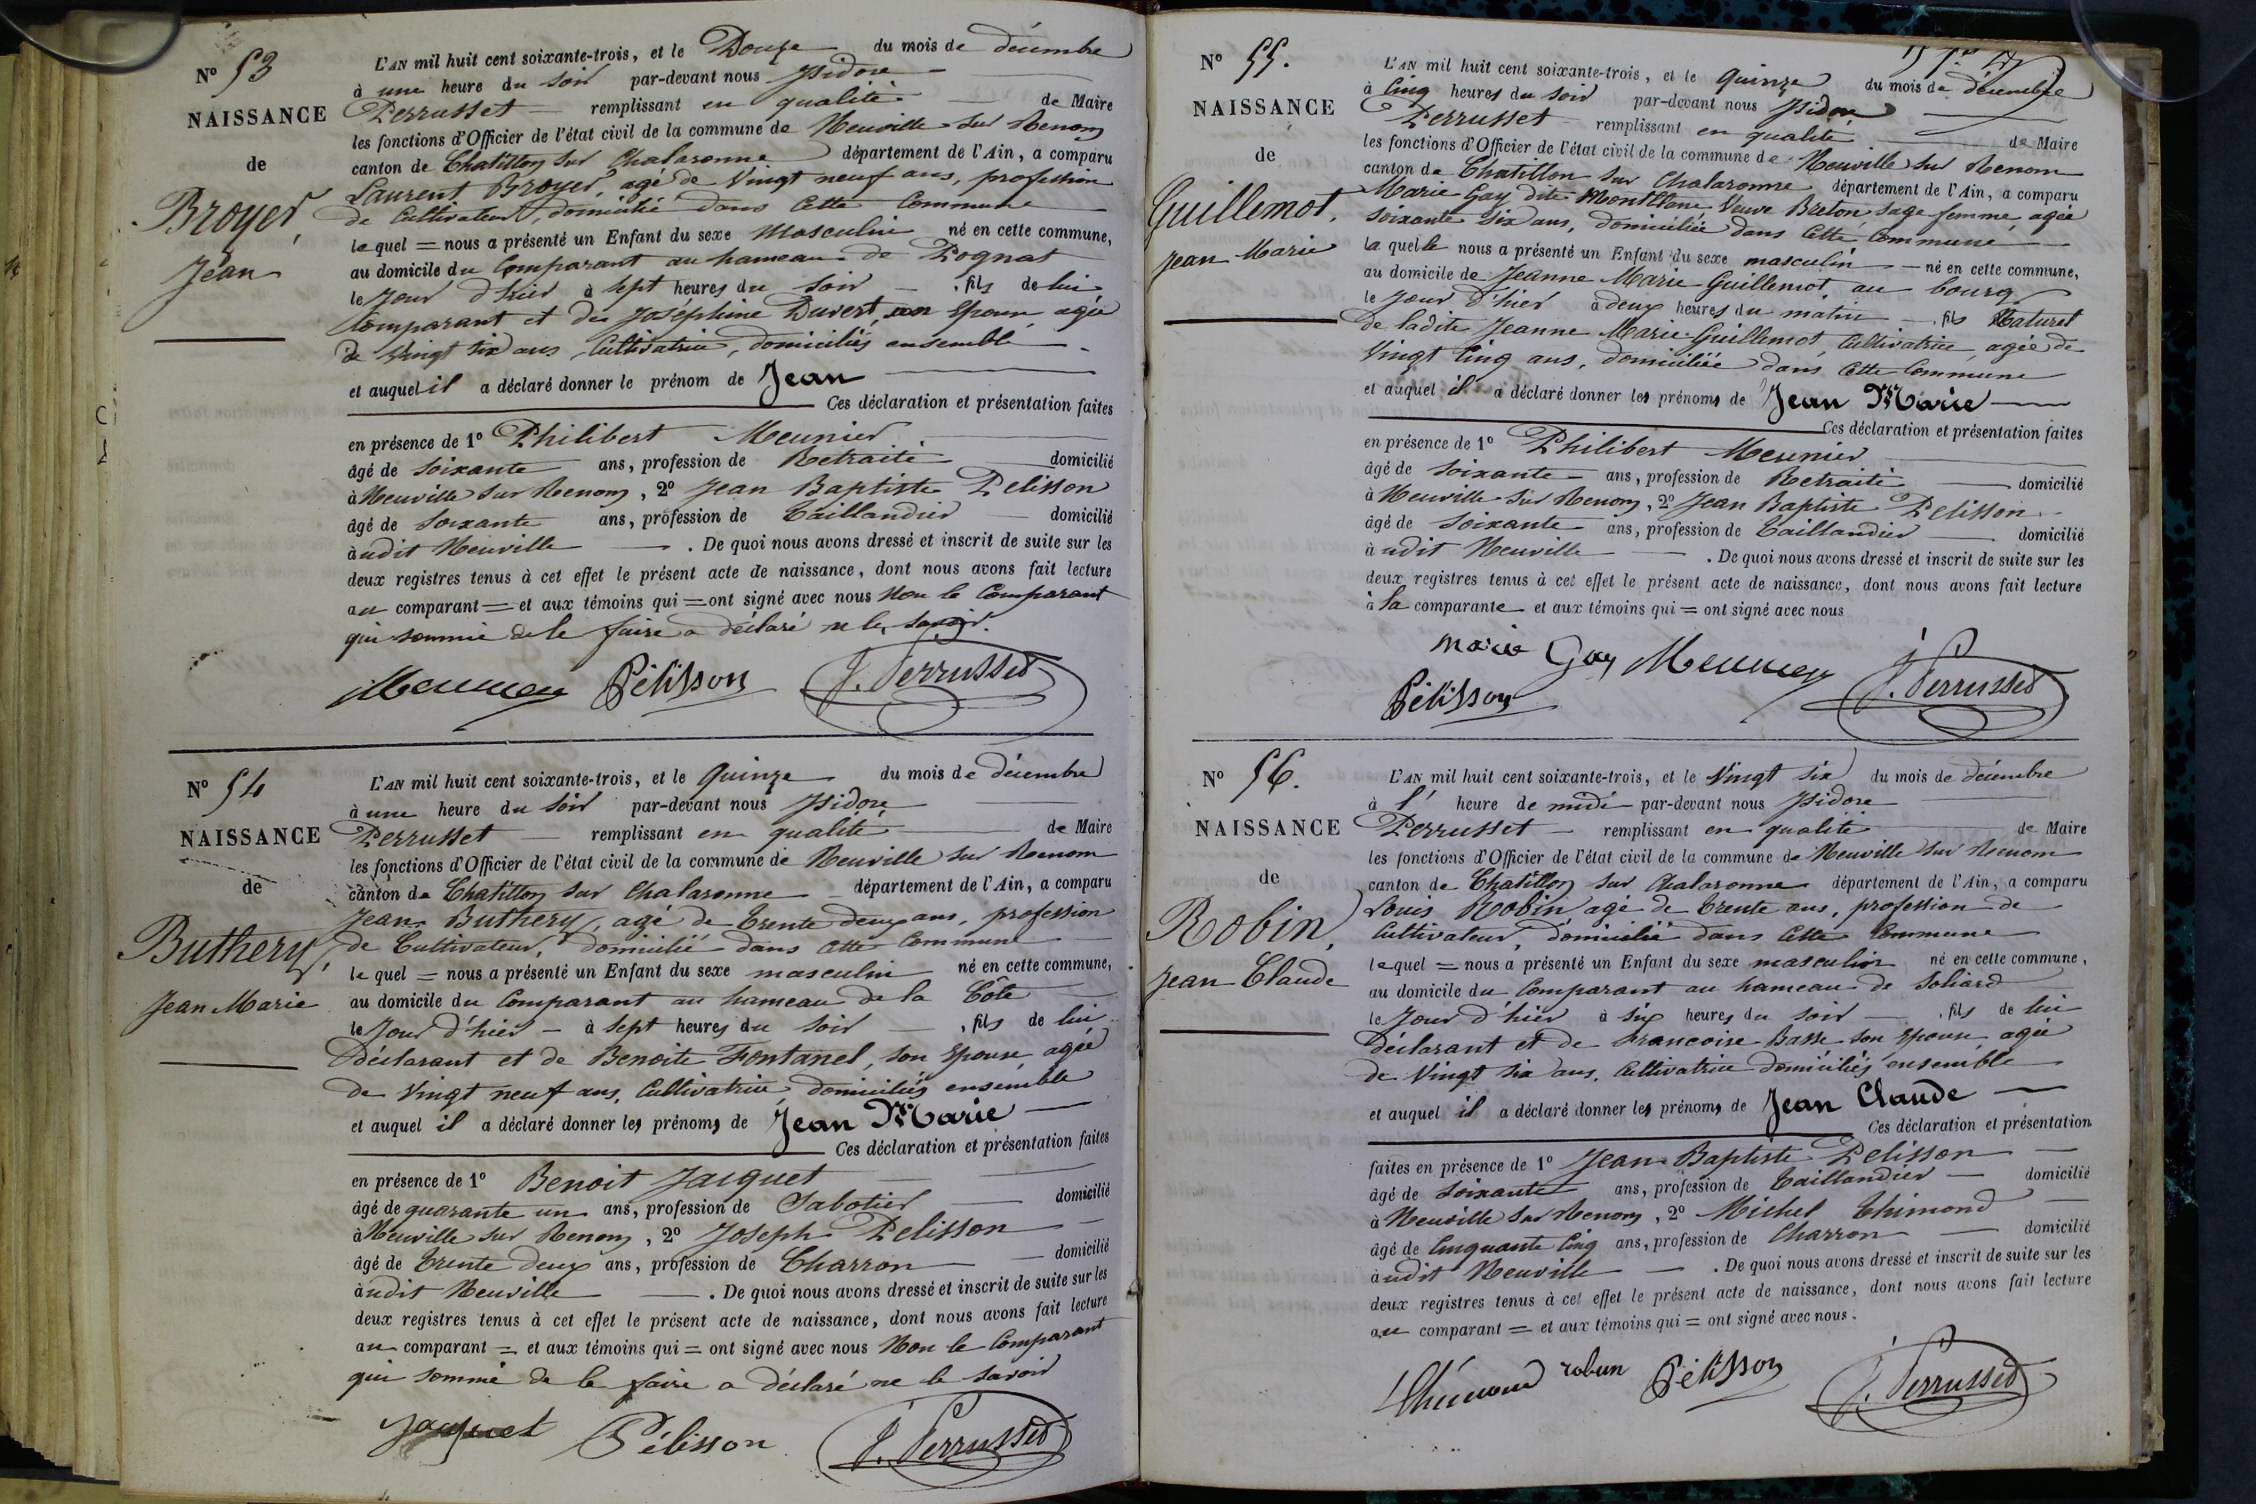 N° 53
NAISSANCE
de
Broyer,
Jean
L'AN mil huit cent soixante-trois, et le Douze du mois de décembre
à une heure du soir par-devant nous Isidore
Perrusset remplissant en qualité de Maire
les fonctions d'Officier de l'état civil de la commune de Neuville sur Renom
canton de Chatillon sur Chalaronne département de l'Ain, a comparu
Laurent Broyer, agé de Vingt neuf ans, profession
de Cultivateur, domicilié dans cette Commune
lequel = nous a présenté un Enfant du sexe masculin né en cette commune,
au domicile du Comparant au hameau de Pognat
le Jour d'hier à sept heures du soir , fils de lui
Comparant et de Joséphine Duvert, son Epouse agée
de Vingt six ans, Cultivatrice, domiciliés ensemble
et auquel il a déclaré donner le prénom de Jean
Ces déclaration et présentation faites
en présence de 1° Philibert Meunier
âgé de soixante ans, profession de Retraité domicilié
à Neuville sur Renom, 2° Jean Baptiste Pelisson
âgé de soixante ans, profession de Taillandier domicilié
à udit Neuville . De quoi nous avons dressé et inscrit de suite sur les
deux registres tenus à cet effet le présent acte de naissance, dont nous avons fait lecture
au comparant = et aux témoins qui = ont signé avec nous Non le Comparant
qui sommé de le faire a déclaré ne le savoir.
Meunier Pélisson J. Perrusset
N° 54
NAISSANCE
de
Buthery,
Jean Marie
L'AN mil huit cent soixante-trois, et le Quinze du mois de décembre
à une heure du soir par-devant nous Isidore
Perrusset remplissant en qualité de Maire
les fonctions d'Officier de l'état civil de la commune de Neuville sur Renom
canton de Chatillon sur Chalaronne département de l'Ain, a comparu
Jean Buthery, agé de trente deux ans, profession
de Cultivateur, domicilié dans cette Commune
lequel = nous a présenté un Enfant du sexe masculin né en cette commune,
au domicile du Comparant au hameau de la Côte
le Jour d'hier à sept heures du soir , fils de lui
déclarant et de Benoite Fontanel, son Epouse agée
de Vingt neuf ans, Cultivatrice, domiciliés ensemble
et auquel il a déclaré donner les prénoms de Jean Marie
Ces déclaration et présentation faites
en présence de 1° Benoit Jacquet
âgé de quarante un ans, profession de Sabotier domicilié
à Neuville sur Renom, 2° Joseph Pelisson
âgé de trente deux ans, profession de Charron domicilié
à udit Neuville . De quoi nous avons dressé et inscrit de suite sur les
deux registres tenus à cet effet le présent acte de naissance, dont nous avons fait lecture
au comparant = et aux témoins qui = ont signé avec nous Non le Comparant
qui sommé de le faire a déclaré ne le savoir
Jacquet Pélisson J. Perrusset
N° 55.
NAISSANCE
de
Guillemot,
Jean Marie
L'AN mil huit cent soixante-trois, et le Quinze du mois de décembre
à cinq heures du soir par-devant nous Isidore
Perrusset remplissant en qualité de Maire
les fonctions d'Officier de l'état civil de la commune de Neuville sur Renom
canton de Chatillon sur Chalaronne département de l'Ain, a comparu
Marie Gay dite Montblanc Veuve Breton, sage femme, agée
soixante six ans, domiciliée dans cette Commune
laquelle nous a présenté un Enfant du sexe masculin né en cette commune,
au domicile de Jeanne Marie Guillemot, au bourg
le Jour d'hier à deux heures du matin , fils Naturel
de ladite Jeanne Marie Guillemot, Cultivatrice, agée de
Vingt Cinq ans, domiciliée dans cette Commune
et auquel il a déclaré donner les prénoms de Jean Marie
Ces déclaration et présentation faites
en présence de 1° Philibert Meunier
âgé de soixante ans, profession de Retraité domicilié
à Neuville sur Renom, 2° Jean Baptiste Pelisson
âgé de soixante ans, profession de Taillandier domicilié
à udit Neuville . De quoi nous avons dressé et inscrit de suite sur les
deux registres tenus à cet effet le présent acte de naissance, dont nous avons fait lecture
à la comparante et aux témoins qui = ont signé avec nous
marie Gay Meunier
Pélisson J. Perrusset
N° 56.
NAISSANCE
de
Robin,
Jean Claude
L'AN mil huit cent soixante-trois, et le Vingt six du mois de décembre
à l' heure de midi par-devant nous Isidore
Perrusset remplissant en qualité de Maire
les fonctions d'Officier de l'état civil de la commune de Neuville sur Renom
canton de Chatillon sur Chalaronne département de l'Ain, a comparu
Louis Robin agé de trente ans, profession de
Cultivateur, domicilié dans cette Commune
lequel = nous a présenté un Enfant du sexe masculin né en cette commune,
au domicile du Comparant au hameau de Soliard
le Jour d'hier à six heures du soir , fils de lui
déclarant et de Francoise Basse son Epouse agée
de Vingt six ans, Cultivatrice domiciliés ensemble
et auquel il a déclaré donner les prénoms de Jean Claude
Ces déclaration et présentation
faites en présence de 1° Jean Baptiste Pelisson
âgé de soixante ans, profession de Taillandier domicilié
à Neuville sur Renom, 2° Michel Thimond
âgé de Cinquante Cinq ans, profession de Charron domicilié
à udit Neuville . De quoi nous avons dressé et inscrit de suite sur les
deux registres tenus à cet effet le présent acte de naissance, dont nous avons fait lecture
au comparant = et aux témoins qui = ont signé avec nous.
Thimond robin Pélisson J. Perrusset